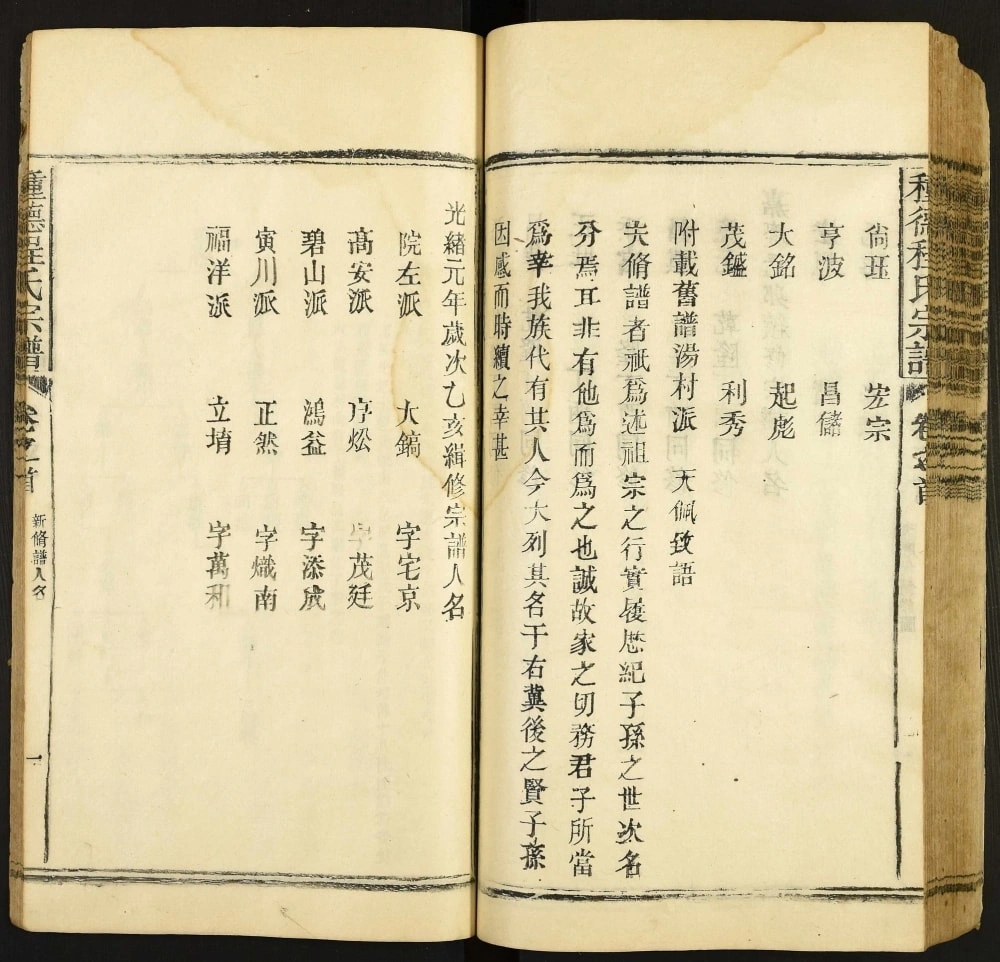 種德程氏宗譜
卷之首
尙珏 宏宗
亨波 昌儲
大銘 起彪
茂鑑 利秀
附載舊譜湯村派 天佩致語
夫脩譜者祇爲述祖宗之行實履歷紀子孫之世次名
分焉耳非有他爲而爲之也誠故家之切務君子所當
爲幸我族代有其人今大列其名于右冀後之賢子孫
因感而時續之幸甚
光緒元年歲次乙亥緝修宗譜人名
院左派 大鎬 字宅京
高安派 序炂 字茂廷
碧山派 鴻益 字添成
寅川派 正然 字熾南
福洋派 立堉 字萬和
種德程氏宗譜
卷之首
新脩譜人名
一